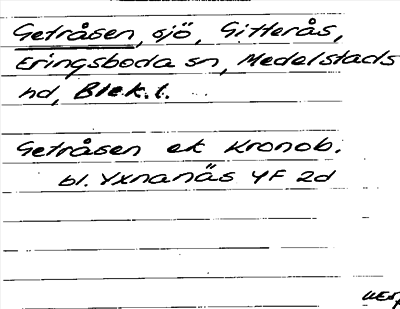 Getråsen, sjö, Gitterås,
Eringsboda sn, Medelstads
hd, Blek.l.
Getråsen ek Kronob.
bl. Yxnanäs YF 2d